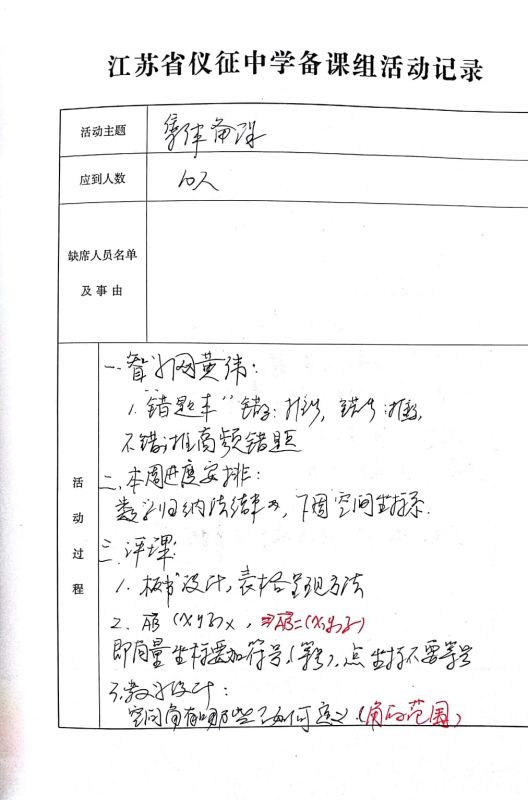 江苏省仪征中学备课组活动记录
活动主题 集体备课
应到人数 10人
缺席人员名单
及事由
活动过程
一、智学网黄伟:
1. 错题本" 错 : 推 , 错 : 推
不错:推高频错题
二、本周进度安排:
数学归纳法结束 , 下周空间坐标系.
三、评课:
1. 板书设计, 表格呈现方法
2. AB (x y z) ×, ⇒AB=(x,y,z)
即向量坐标要加符号,(等号), 点坐标不要等号
3. 教学设计:
空间角有哪些?如何定义 (角的范围)